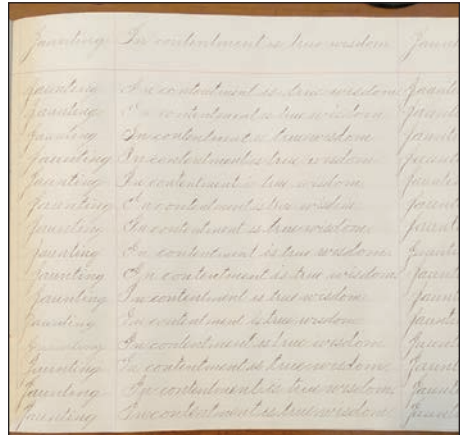 Jaunting In contentment is true wisdom Jaunt
Jaunting In contentment is true wisdom Jaunt
Jaunting In contentment is true wisdom Jaunt
Jaunting In contentment is true wisdom Jaunt
Jaunting In contentment is true wisdom Jaunt
Jaunting In contentment is true wisdom Jaunt
Jaunting In contentment is true wisdom Jaunt
Jaunting In contentment is true wisdom Jaunt
Jaunting In contentment is true wisdom Jaunt
Jaunting In contentment is true wisdom Jaunt
Jaunting In contentment is true wisdom Jaunt
Jaunting In contentment is true wisdom Jaunt
Jaunting In contentment is true wisdom Jaunt
Jaunting In contentment is true wisdom Jaunt
Jaunting In contentment is true wisdom Jaunt
Jaunting In contentment is true wisdom Jaunt